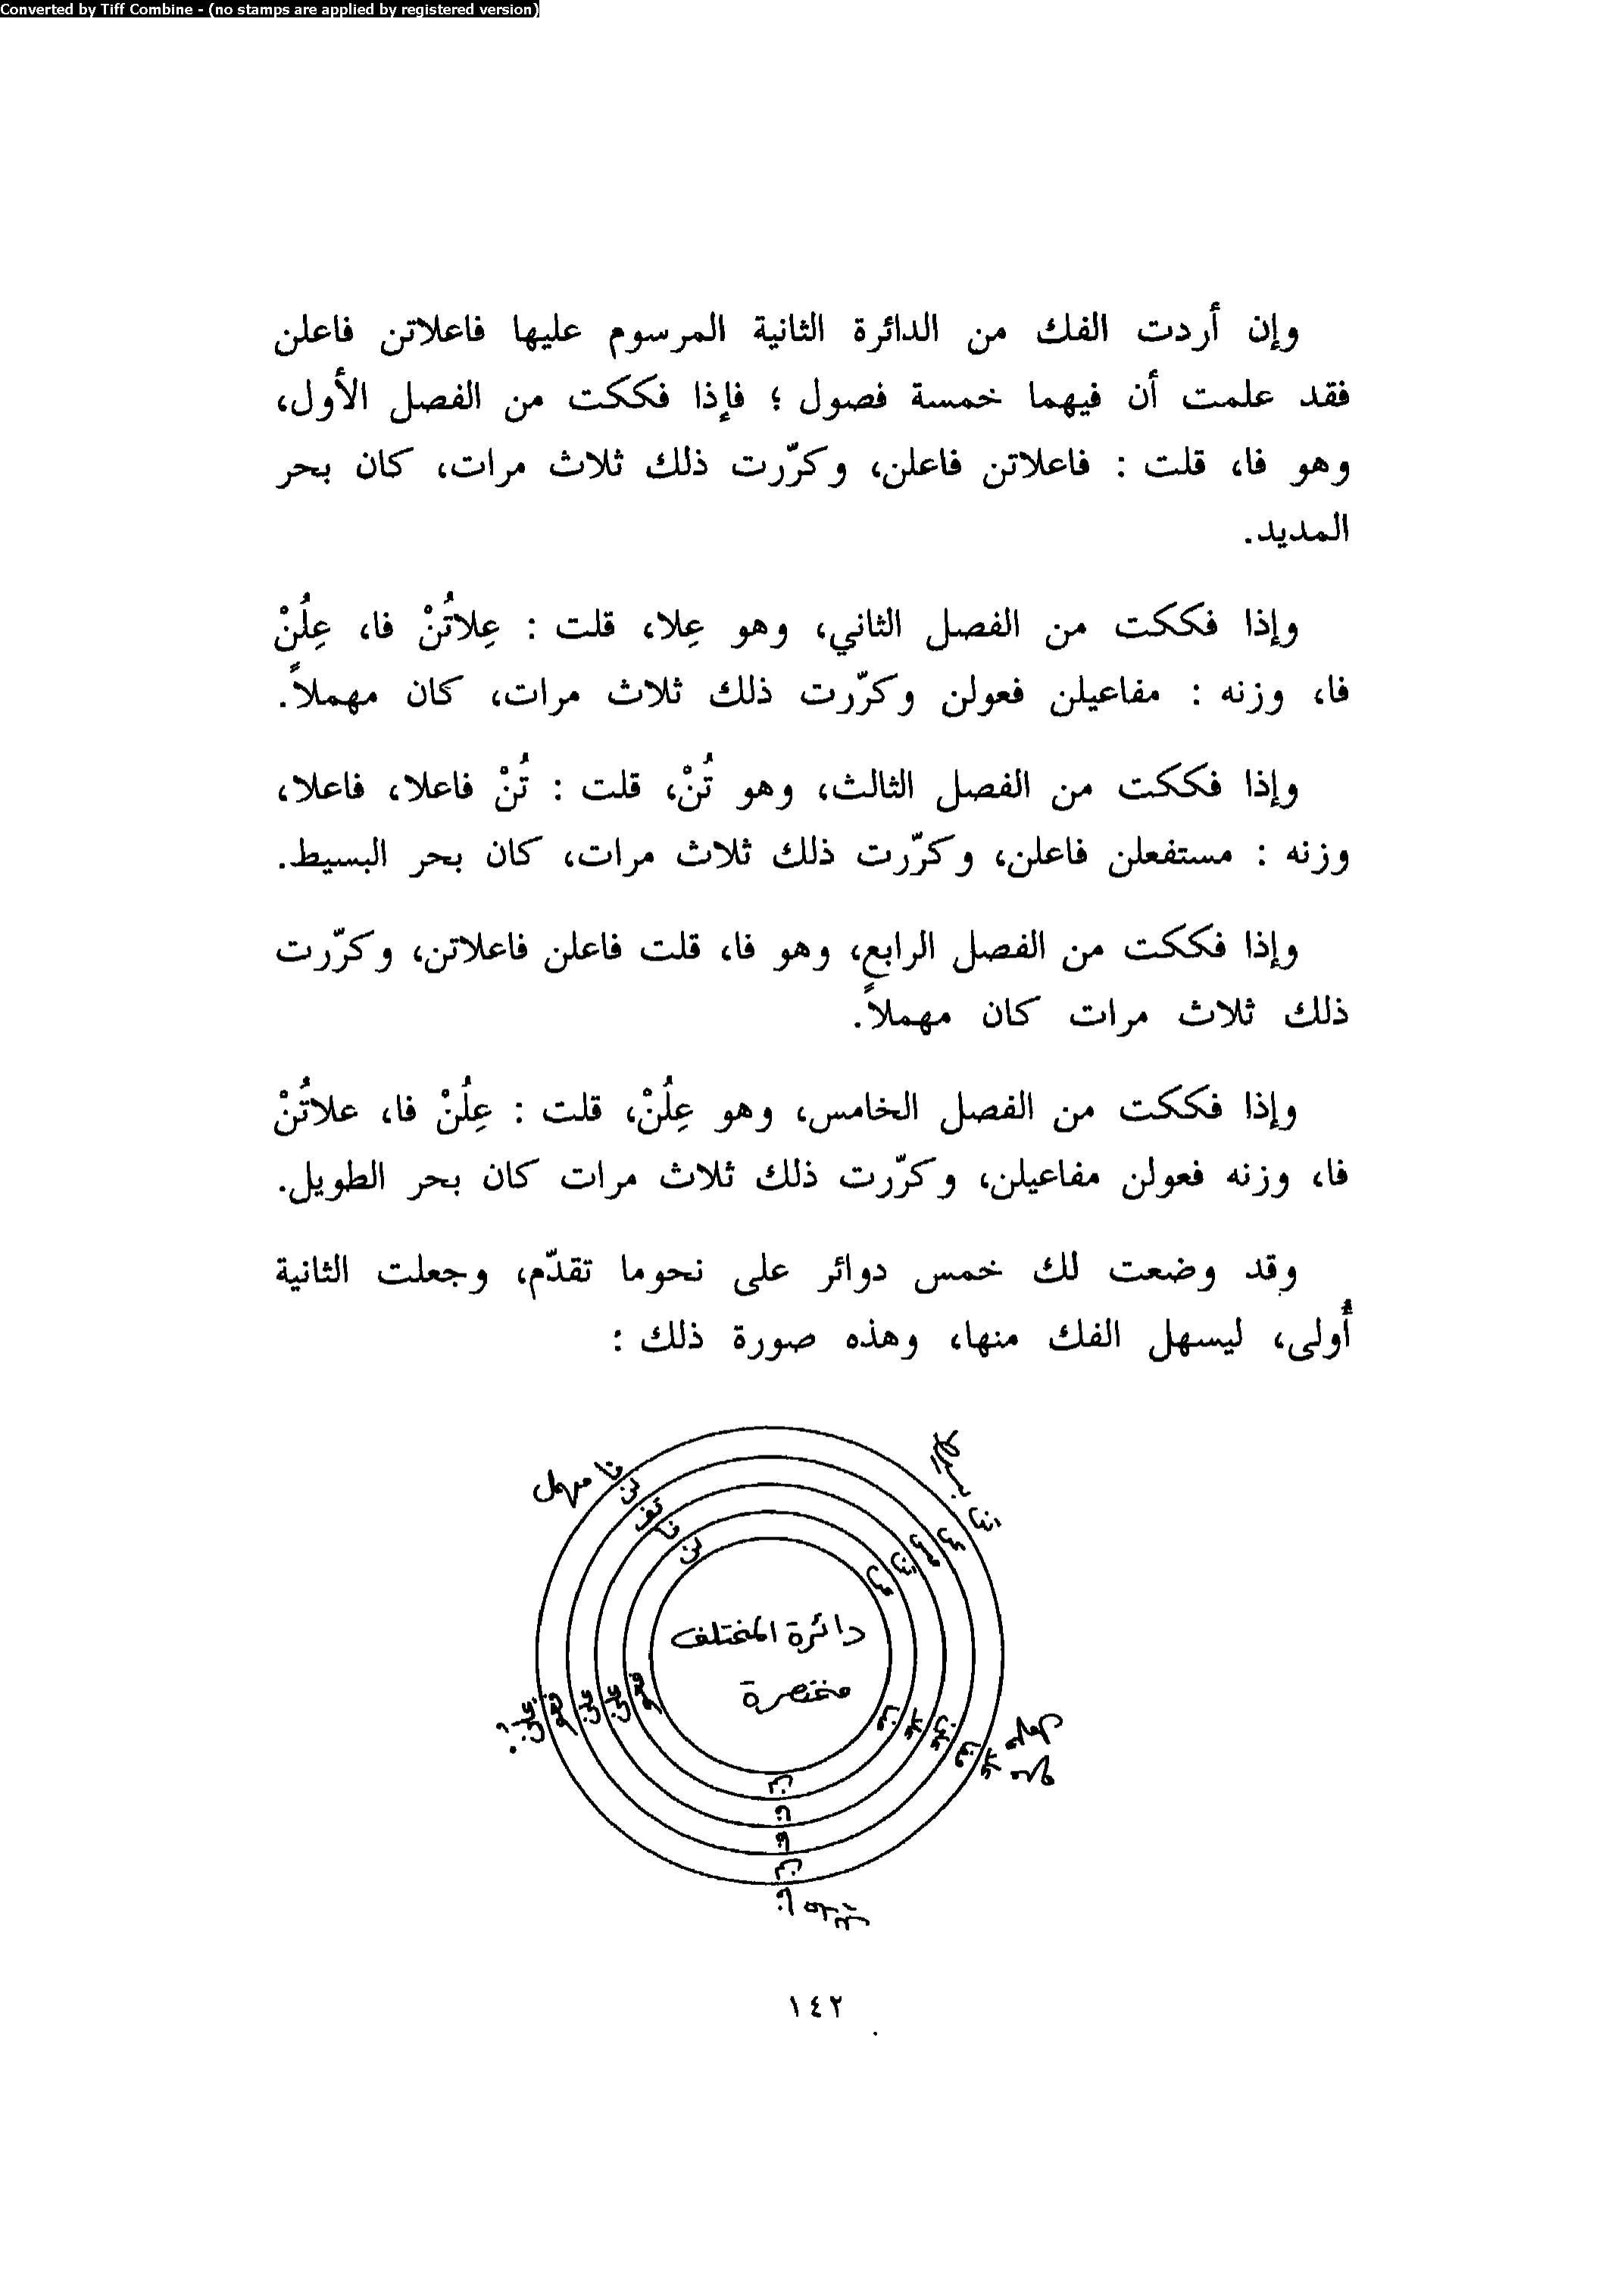 Converted by Tiff Combine - (no stamps are applied by registered version)
وإن أردت الفك من الدائرة الثانية المرسوم عليها فاعلاتن فاعلن
فقد علمت أن فيهما خمسة فصول ؛ فإذا فككت من الفصل الأول،
وهو فا، قلت : فاعلاتن فاعلن، وكرّرت ذلك ثلاث مرات، كان بحر
المديد.
وإذا فككت من الفصل الثاني، وهو عِلا، قلت : عِلاتُنْ فا، عِلُنْ
فا، وزنه : مفاعيلن فعولن وكرّرت ذلك ثلاث مرات، كان مهملاً.
وإذا فككت من الفصل الثالث، وهو تُنْ، قلت : تُنْ فاعلا، فاعلا،
وزنه : مستفعلن فاعلن، وكرّرت ذلك ثلاث مرات، كان بحر البسيط.
وإذا فككت من الفصل الرابع، وهو فا، قلت فاعلن فاعلاتن، وكرّرت
ذلك ثلاث مرات كان مهملاً.
وإذا فككت من الفصل الخامس، وهو عِلُنْ، قلت : عِلُنْ فا، علاتُنْ
فا، وزنه فعولن مفاعيلن، وكرّرت ذلك ثلاث مرات كان بحر الطويل.
وقد وضعت لك خمس دوائر على نحوما تقدّم، وجعلت الثانية
أُولى، ليسهل الفك منها، وهذه صورة ذلك :
فا مهمل
لن
تف
فا
لن
بسيط
تن
عي
مس
تن
عي
دائرة المختلف
مختصرة
فعو
علن
علن
فعو
علن
مفا
علا
علن
مفا
علا
لن
فا
فا
لن
فا
١٤٢